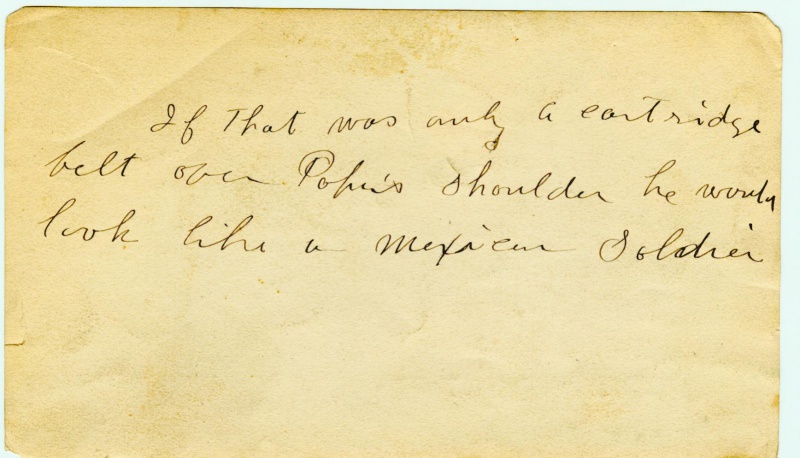 If That was only a cartridge
belt over Papa's shoulder he would
look like a Mexican Soldier